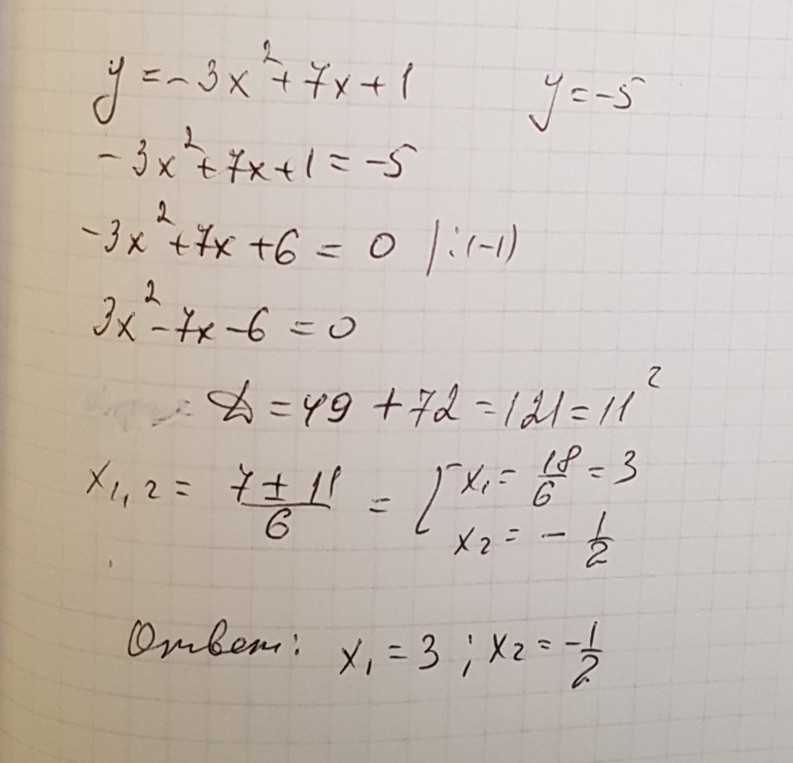 y = -3x² + 7x + 1 y = -5
-3x² + 7x + 1 = -5
-3x² + 7x + 6 = 0 | : (-1)
3x² - 7x - 6 = 0
= D = 49 + 72 = 121 = 11²
x₁,₂ = (7 ± 11)/6 = [ x₁ = 18/6 = 3
x₂ = - 1/2
Ответ: x₁ = 3 ; x₂ = - 1/2